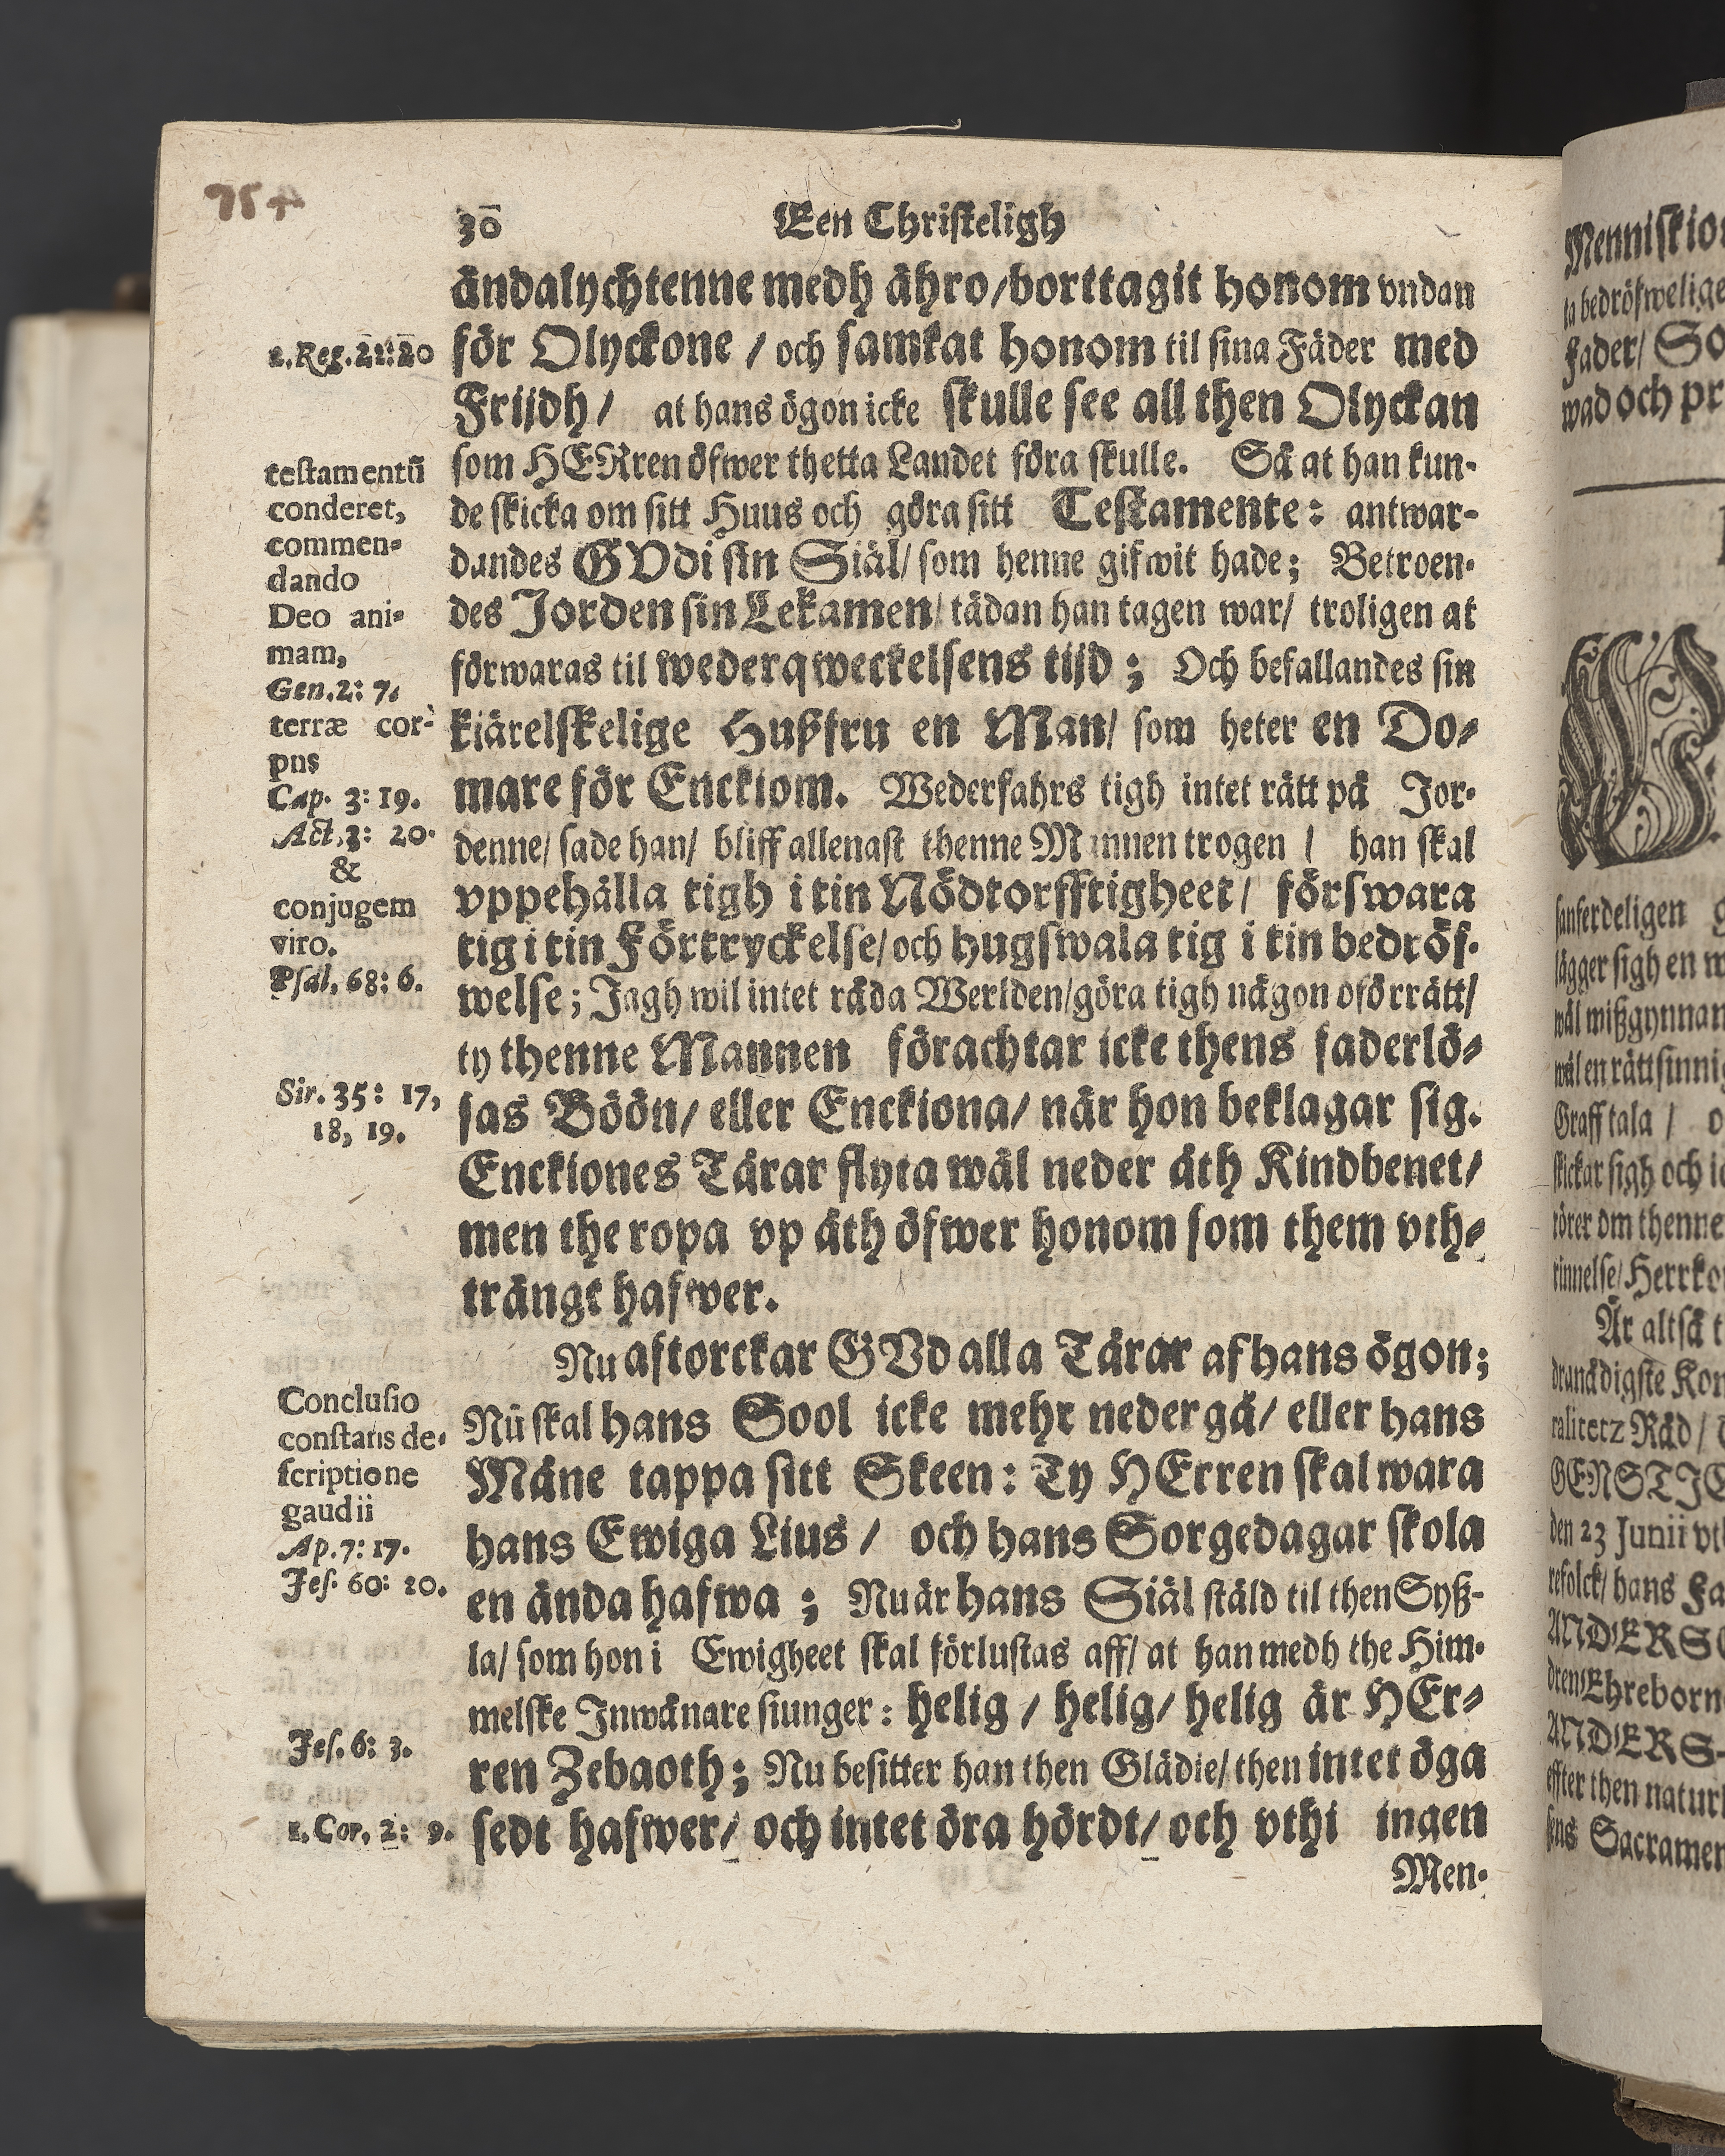 754
30 Een Christeligh
ändalychtenne medh ähro/borttagit honom vndan
för Olyckone / och samkat honom til sina Fäder med
Frijdh/ at hans ögon icke skulle see all then Olyckan
som HERren öfwer thetta Landet föra skulle. Så at han kun-
de skicka om sitt Huus och göra sitt Testamente: antwar-
dandes GVdi sin Siäl/ som henne gifwit hade; Betroen-
des Jorden sin Lekamen/ tädan han tagen war/ troligen at
förwaras til wederqweckelsens tijd; Och befallandes sin
kiärelskelige Hußfru en Man/ som heter en Do-
mare för Enckiom. Wederfahrs tigh intet rätt på Jor-
denne/ sade han/ bliff allenast thenne Mannen trogen / han skal
vppehålla tigh i tin Nödtorfftigheet/ förswara
tig i tin Förtryckelse/och hugswala tig i tin bedröf-
welse; Jagh wil intet råda Werlden/göra tigh någon oförrätt/
ty thenne Mannen förachtar icke thens faderlö-
sas Böön/ eller Enckiona/ når hon beklagar sig.
Enckiones Tårar flyta wäl neder åth Kindbenet/
men the ropa vp åth öfwer honom som them vth-
trängt hafwer.
Nu aftorckar GVd alla Tårar af hans ögon;
Nu skal hans Sool icke mehr neder gå/ eller hans
Måne tappa sitt Skeen: Ty HErren skal wara
hans Ewiga Lius / och hans Sorgedagar skola
en ända hafwa ; Nu är hans Siäl stäld til then Syß-
la/ som hon i Ewigheet skal förlustas aff/ at han medh the Him-
melske Inwånare siunger: helig / helig/ helig är HEr-
ren Zebaoth; Nu besitter han then Glädie/ then intet öga
sedt hafwer/ och intet öra hördt/ och vthi ingen
Men-
2. Reg. 22: 20
testamentū
conderet,
commen-
dando
Deo ani-
mam,
Gen. 2: 7.
terræ cor-
pus
Cap. 3: 19.
Act. 3: 20.
&
conjugem
viro.
Psal. 68: 6.
Sir. 35: 17,
18, 19.
Conclusio
constans de-
scriptione
gaudii
Ap. 7: 17.
Jes. 60: 20.
Jes. 6: 3.
1. Cor. 2: 9.